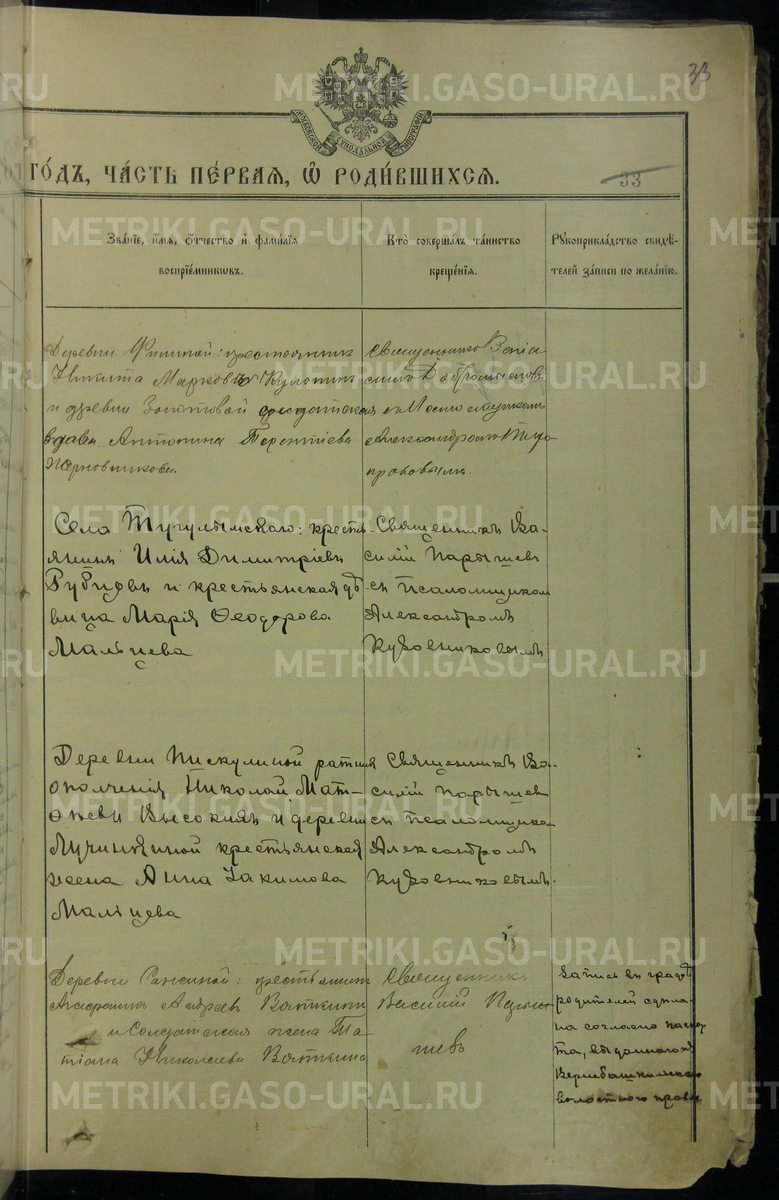 33
МОСКОВСКОЙ СѴНОДАЛЬНОЙ ТИПОГРАФІИ
ГО́ДЪ, ЧА́СТЬ ПЕ́РВАЯ, Ѡ РОДИ́ВШИХСЯ.
33
Зва́нїе, и́мя, ѻ́тчество и҆ фами́лїя
воспрїе́мниковъ.
Кто̀ соверша́лъ та́инство
креще́нїя.
Рꙋкоприкла́дство свидѣ́-
телей за́писи по жела́нїю.
Деревни крестьянин
Никита Марковъ
и деревни солдатская
вдова Антонина Терентіева
Священникъ
с Псаломщиком
Александромъ
Села Тугулымскаго: кресть-
янинъ Илія Димитріевъ
Рубцовъ и крестьянская дѣ-
вица Марія Ѳеодорова
Мальцева
Священникъ Ва-
силій Парышевъ
съ псаломщикомъ
Александромъ
Кузовниковымъ
Деревни Пискулиной ратникъ
ополченія Николай Мат-
ѳеевъ Высокихъ и деревни
Лучинкиной крестьянская
жена Анна Іакимова
Мальцева
Священникъ Ва-
силій Парышевъ
съ псаломщикомъ
Александромъ
Кузовниковымъ.
Деревни крестьянинъ
Андреевъ Вяткинъ
и Солдатская жена Та-
тіана Николаева Вяткина
Священникъ
Василій Пары-
шевъ
Запись въ графѣ
родителей сдѣла-
на согласно паспор-
та, выданнаго
волостного правле.
METRIKI.GASO-URAL.RU